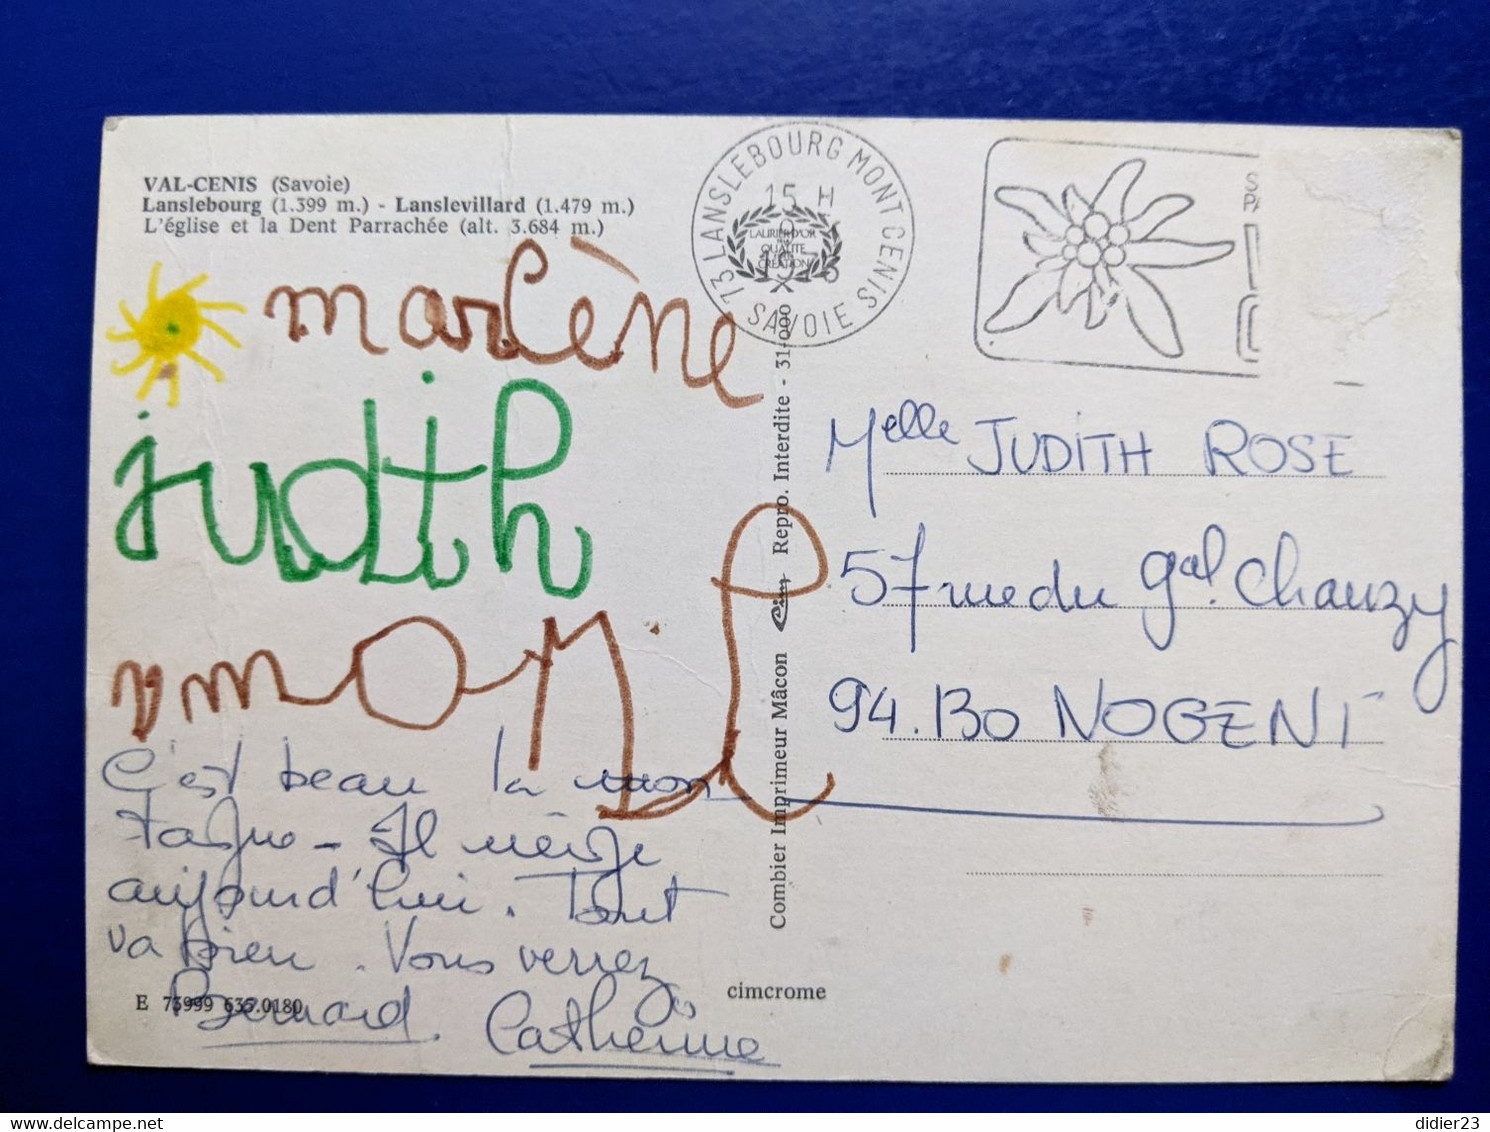 VAL-CENIS (Savoie)
Lanslebourg (1.399 m.) - Lanslevillard (1.479 m.)
L'église et la Dent Parrachée (alt. 3.684 m.)
73 LANSLEBOURG MONT CENIS
SAVOIE
15 H
LAURIER D'OR
QUALITE
CREATION
marlène
judith
C'est beau la mon
tagne - Il neige
aujourd'hui. Tout
va bien. Vous verrez
Bernard. Catherine
E 73999 635.0180
cimcrome
Combier Imprimeur Mâcon Cim Repro. Interdite - 31-000
Melle JUDITH ROSE
57 rue du Gal. Chanzy
94.130 NOGENT
didier23